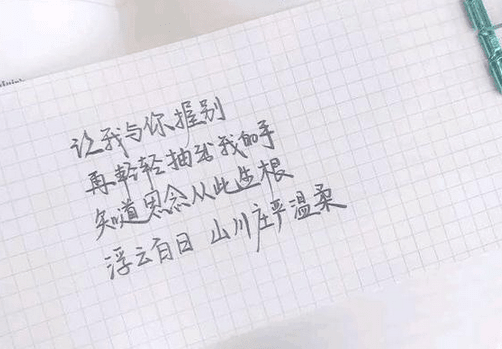 让我与你握别
再轻轻抽出我的手
知道思念从此生根
浮云白日 山川庄严温柔